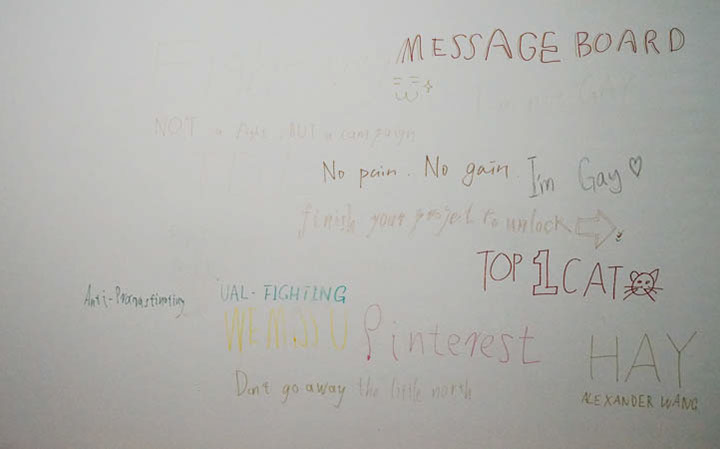 MESSAGE BOARD
I'm not GAY
NOT a fight. BUT a campaign
No pain. No gain. I'm Gay
finish your project to unlock
TOP 1 CAT
Anti-Procrastinating
UAL-FIGHTING
WE MISS U
Pinterest
HAY
ALEXANDER WANG
Don't go away the little north